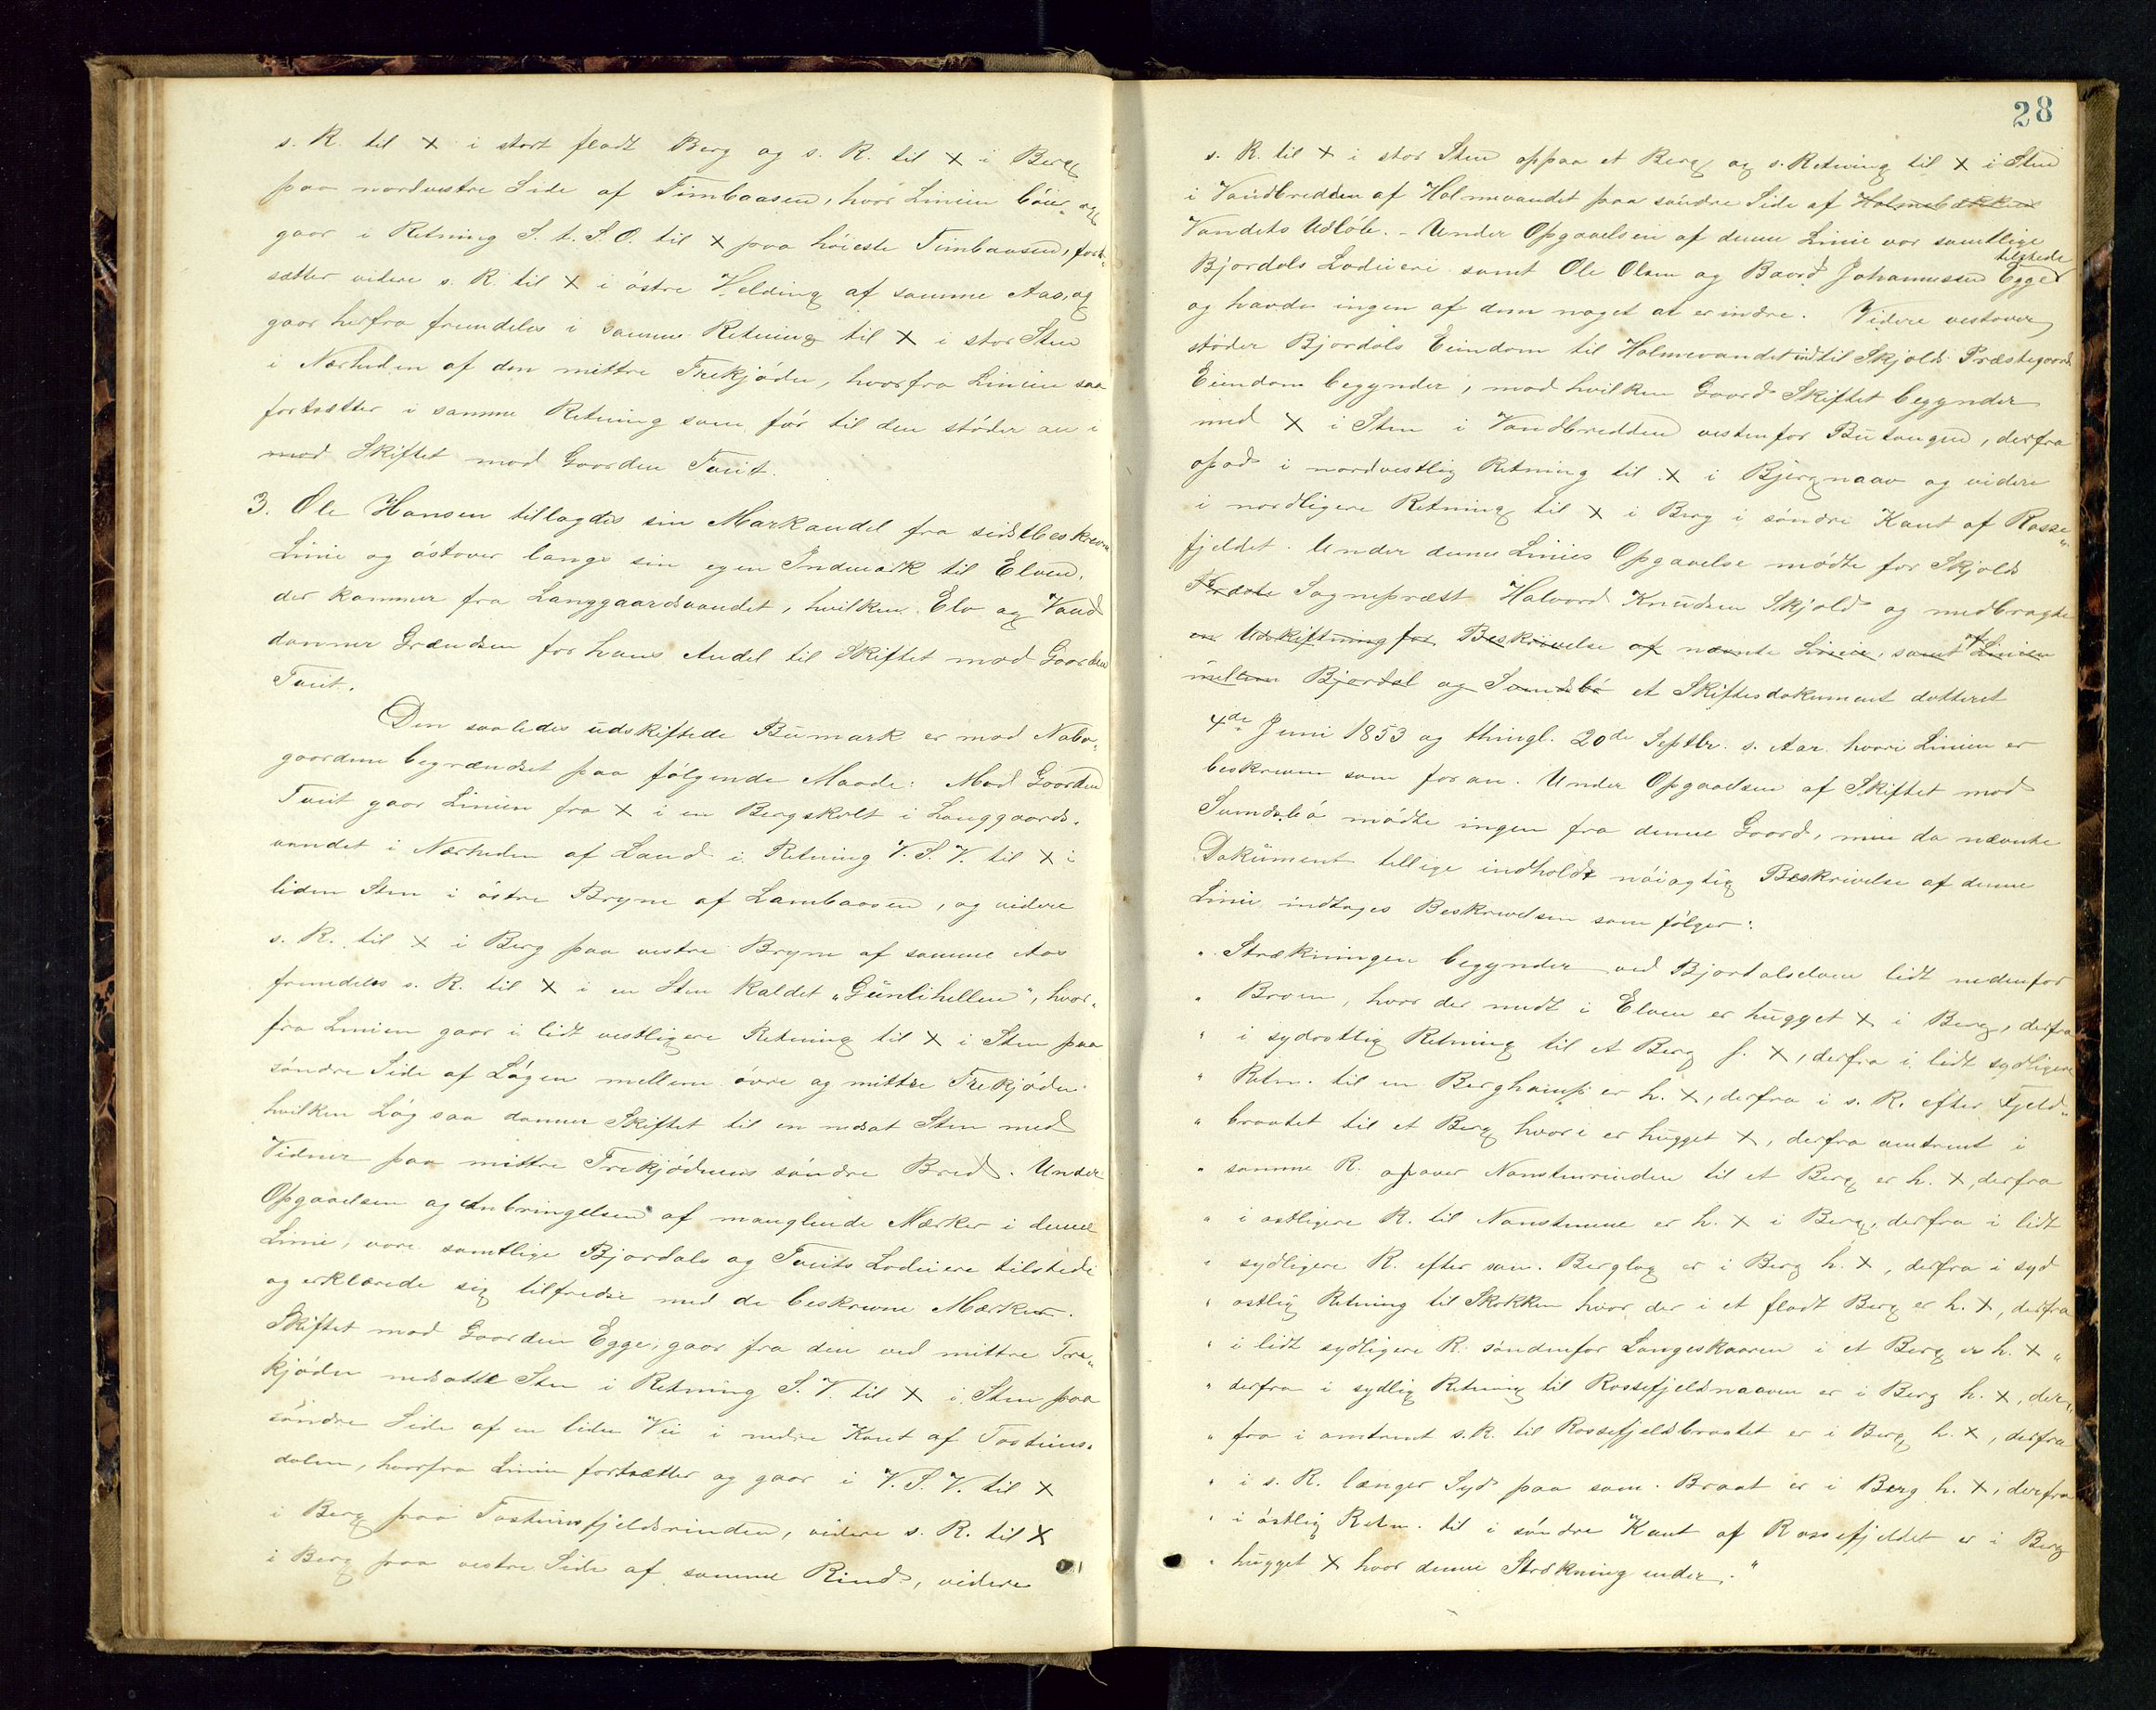 s. R. til X i stort fladt Berg og s. R. til X i Berg
paa nordvestre Side af Timbaasen, hvor Linien böier og
gaar i Retning S. t. S. O. til X paa höieste Timbaasen, fort-
sætter videre s. R. til X i östre Helding af samme Aas, og
gaar herfra fremdeles i samme Retning til X i stor Sten
i Nærheden af den mittre Trekjödn, hvorfra Linien saa
fortsætter i samme Retning som för til den stöder an i
mod Skiftet mod Gaarden Tveit.
3. Ole Hansen tillagdes sin Markandel fra sidstbeskrevne
Linie og östover langs sin egen Indmark til Elven,
der kommer fra Langgaardsvandet, hvilken Elv og Vand
danner Grændsen for hans Andel til Skiftet mod Gaarden
Tveit.
Den saaledes udskiftede Bümark er mod Nabo-
gaardene begrændset paa fölgende Maade: Mod Gaarden
Tveit gaar Linien fra X i en Bergskolt i Langgaards-
vandet i Nærheden af Land i Retning V. S. V. til X i
liden Sten i östre Bryne af Lambaasen, og videre
s. R. til X i Berg paa vestre Bryne af samme Aas
fremdeles s. R. til X i en Sten kaldet "Güntihellen", hvor-
fra Linien gaar i lidt vestligere Retning til X i Sten paa
söndre Side af Lögen mellem övre og mittre Trekjödn
hvilken Lög saa danner Skiftet til en nedsat Sten med
Vidner paa mittre Trekjödnens söndre Bred. Under
Opgaaelsen og Anbringelsen af manglende Mærker i denne
Linie, vare samtlige Bjordals og Tveits Lodeiere tilstede
og erklærede sig tilfredse med de beskrevne Mærker.
Skiftet mod Gaarden Egge, gaar fra den ved mittre Tre-
kjödn nedsatte Sten i Retning S. V. til X i Sten paa
söndre Side af en liden Vii i nedre Kant af Tosteins-
dalen, hvorfra Linien fortsætter og gaar i V. S. V. til X
i Berg paa Tosteinsfjeldsrinden, videre s. R. til X
i Berg paa vestre Side af samme Rind, videre
28
s. R. til X i stor Sten oppaa et Berg og s. Retning til X i Sten
i Vandbredden af Holmevandet paa söndre Side af Holmebækken
Vandets Udlöb. - Under Opgaaelsen af denne Linie var samtlige
tilstede
Bjordals Lodeiere samt Ole Olsen og Baard Johannessen Egge
og havde ingen af dem noget at erindre. Videre vestover
stöder Bjordals Eiendom til Holmevandet indtil Skjolds Præstegaards
Eiendom begynder, mod hvilken Gaard Skiftet begynder
med X i Sten i Vandbredden vestenfor Bütangen, derfra
opad i nordvestlig Retning til X i Bjergnaav og videre
i nordligere Retning til X i Berg i söndre Kant af Rosse-
fjeldet. Under denne Linies Opgaaelse mödte for Skjolds
Præste Sognepræst Halvord Knudsen Skjold og medbragte
en Udskiftning for Beskrivelse af nævnte Linie, samt af Linien
mellem Bjordal og Sandsbö et Skiftesdokument datteret
4de Juni 1853 og thingl. 20de Septbr. s. Aar. hvori Linien er
beskreven som foran. Under Opgaaelsen af Skiftet mod
Sumdsbö mödte ingen fra denne Gaard, men da nævnte
Dokument tillige indholdt nöiagtig Beskrivelse af denne
Linie indtages Beskrivelsen som fölger:
" Strækningen begynder ved Bjordalselven lidt nedenfor
" Broen, hvor der midt i Elven er hugget X i Berg, derfra
" i sydostlig Retning til et Berg h. X, derfra i lidt sydligere
" Retn. til en Berghamp er h. X, derfra i s. R. efter Fjeld-
" braatet til et Berg hvori er hugget X, derfra omtrent i
" samme R. opover Nonstenrinden til et Berg er h. X, derfra
" i ostligere R. til Nonstenene er h. X i Berg, derfra i lidt
" sydligere R. efter sam. Berglag er i Berg h. X, derfra i syd
" ostlig Retning til Skokken hvor der i et fladt Berg er h. X, derfra
" i lidt sydligere R. söndenfor Langeskaaren i et Berg er h. X "
" derfra i sydlig Retning til Rossefjeldnaaven er i Berg h. X, der-
" fra i omtrent s. R. til Rossefjeldbraatet er i Berg h. X, derfra
" i s. R. længer Syd paa sam. Braat er i Berg h. X, derfra
" i östlig Retn. til i söndre Kant af Rossefjeldet er i Berg
" hugget X hvor denne Strækning ender."